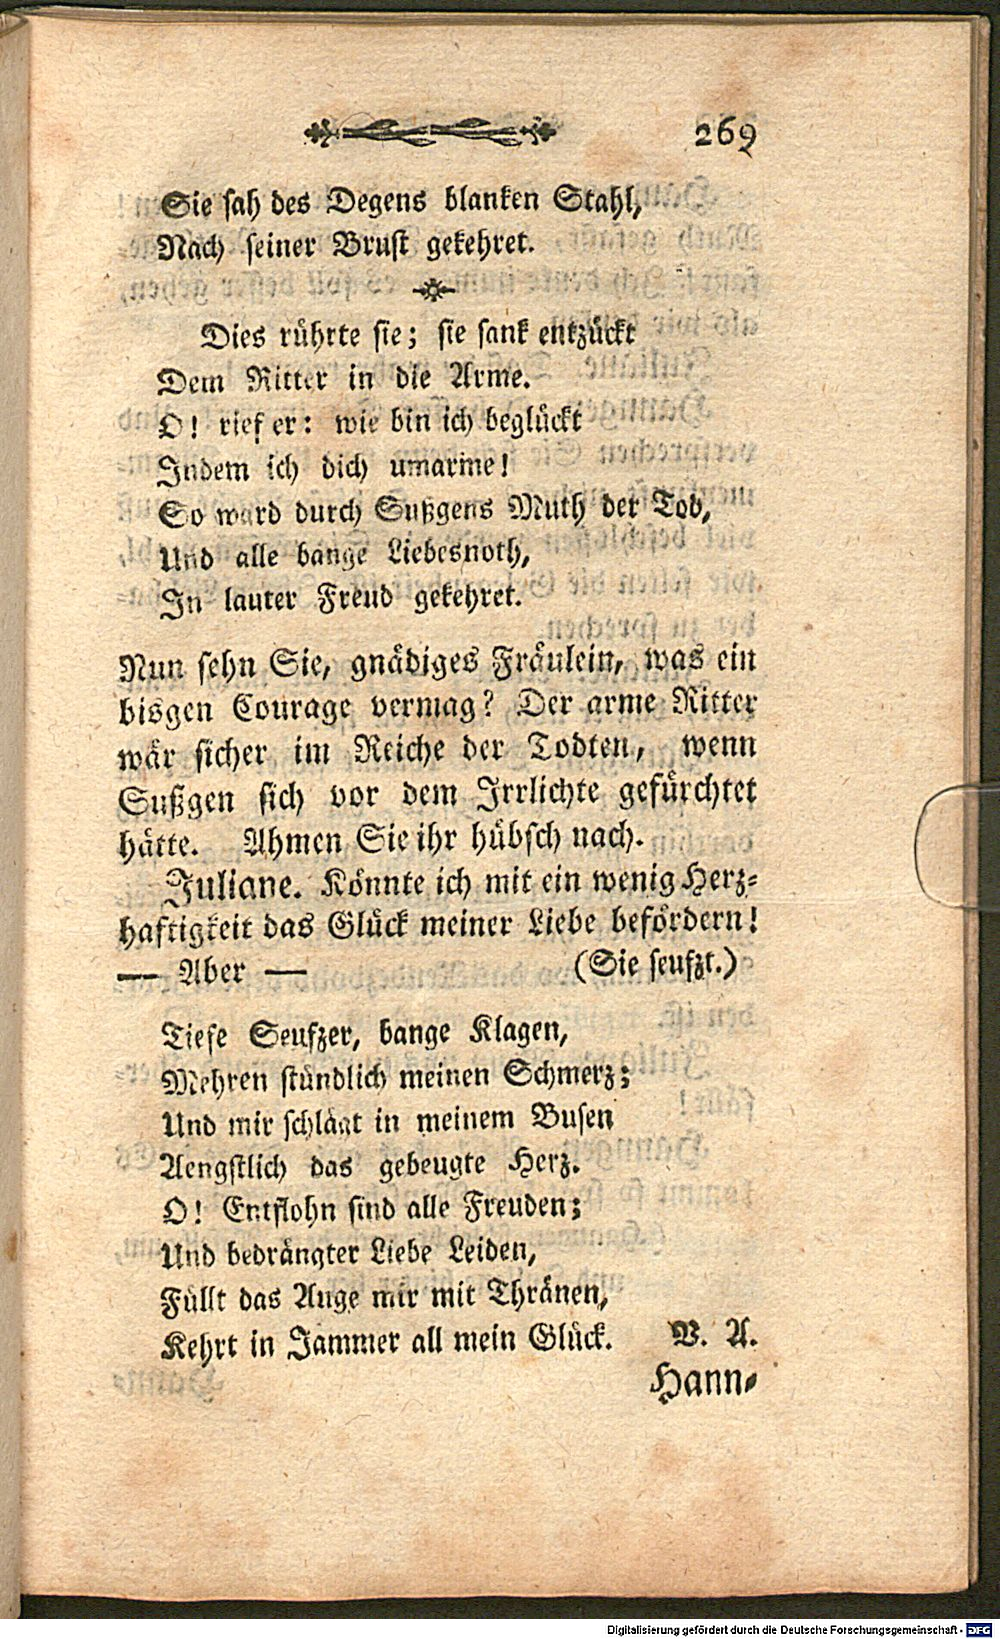 269
Sie sah des Degens blanken Stahl,
Nach seiner Brust gekehret.
Dies rührte sie; sie sank entzückt
Dem Ritter in die Arme.
O! rief er: wie bin ich beglückt
Indem ich dich umarme!
So ward durch Sußgens Muth der Tod,
Und alle bange Liebesnoth,
In lauter Freud gekehret.
Nun sehn Sie, gnädiges Fräulein, was ein
bisgen Courage vermag? Der arme Ritter
wär sicher im Reiche der Todten, wenn
Sußgen sich vor dem Irrlichte gefürchtet
hätte. Ahmen Sie ihr hübsch nach.
Juliane. Könnte ich mit ein wenig Herz-
haftigkeit das Glück meiner Liebe befördern!
— Aber — (Sie seufzt.)
Tiefe Seufzer, bange Klagen,
Mehren stündlich meinen Schmerz;
Und mir schlägt in meinem Busen
Aengstlich das gebeugte Herz.
O! Entflohn sind alle Freuden;
Und bedrängter Liebe Leiden,
Füllt das Auge mir mit Thränen,
Kehrt in Jammer all mein Glück. V. A.
Hann-
Digitalisierung gefördert durch die Deutsche Forschungsgemeinschaft - DFG